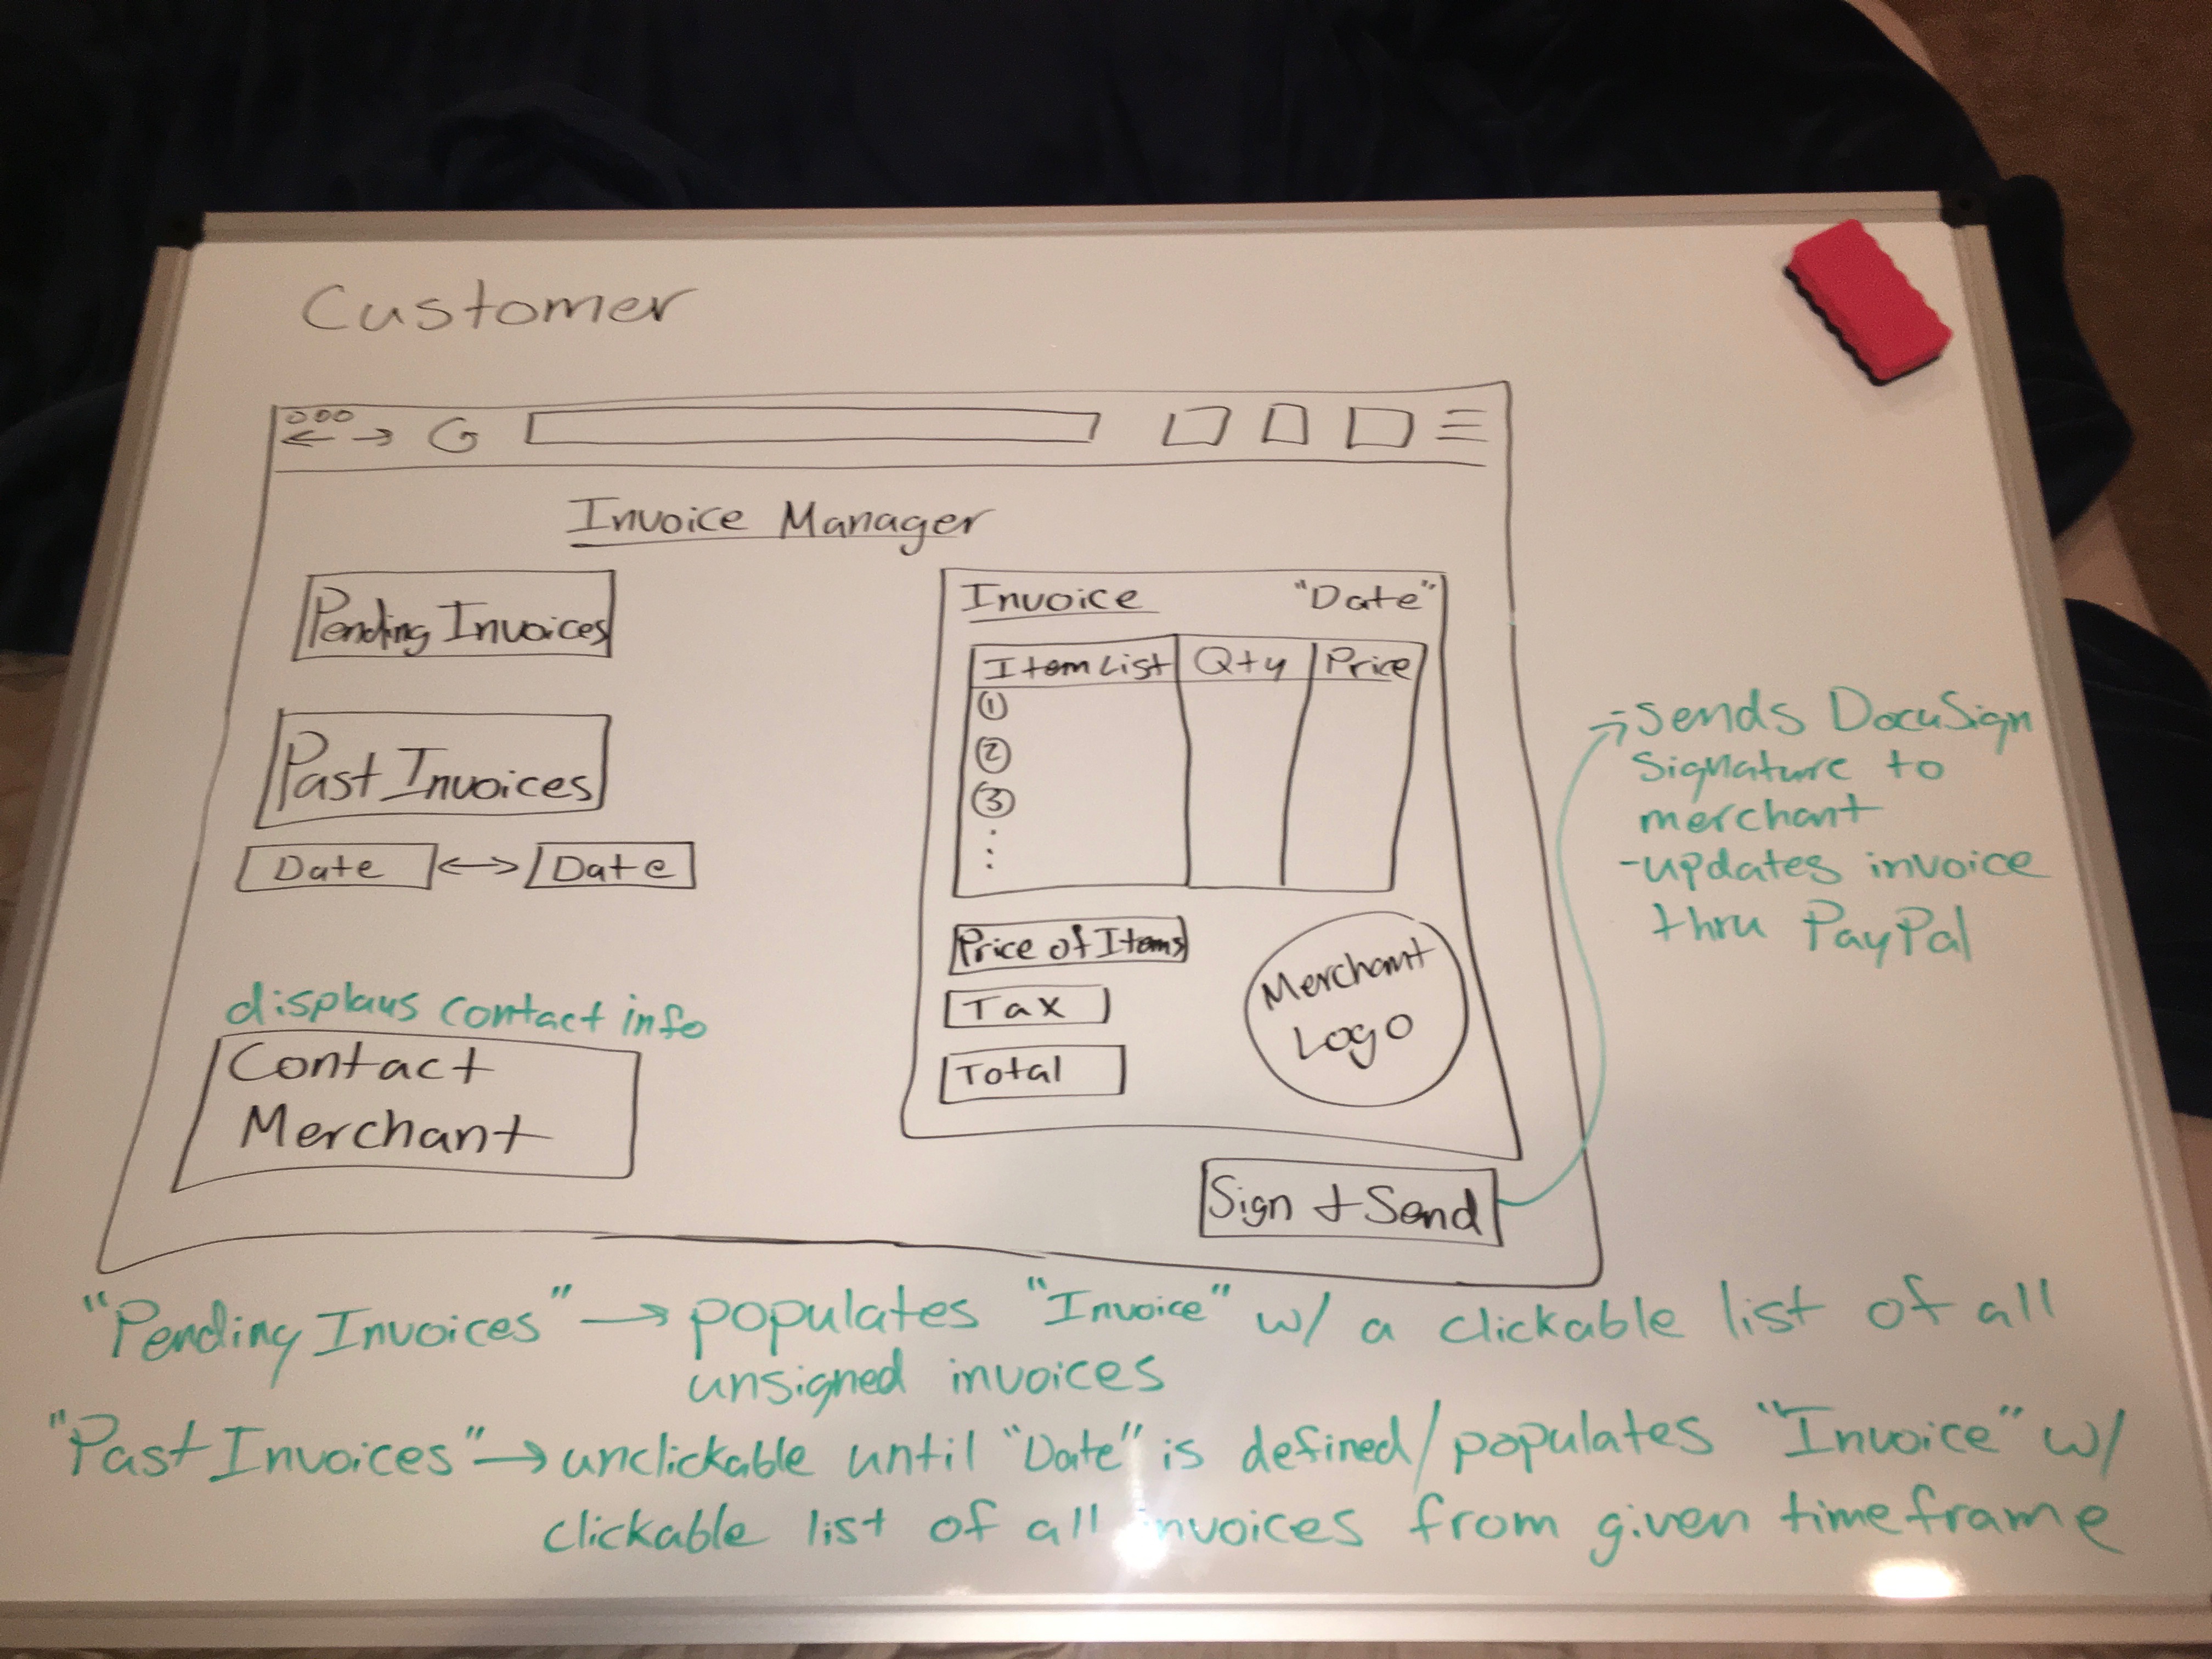 Customer
Invoice Manager
Pending Invoices
Past Invoices
Date ↔ Date
displays contact info
Contact
Merchant
Invoice "Date"
Item List Qty Price
1
2
3
Price of Items
Tax
Total
Merchant
Logo
Sign + Send
- sends DocuSign
signature to
merchant
- updates invoice
thru PayPal
"Pending Invoices" → populates "Invoice" w/ a clickable list of all
unsigned invoices
"Past Invoices" → unclickable until "Date" is defined/populates "Invoice" w/
clickable list of all invoices from given timeframe